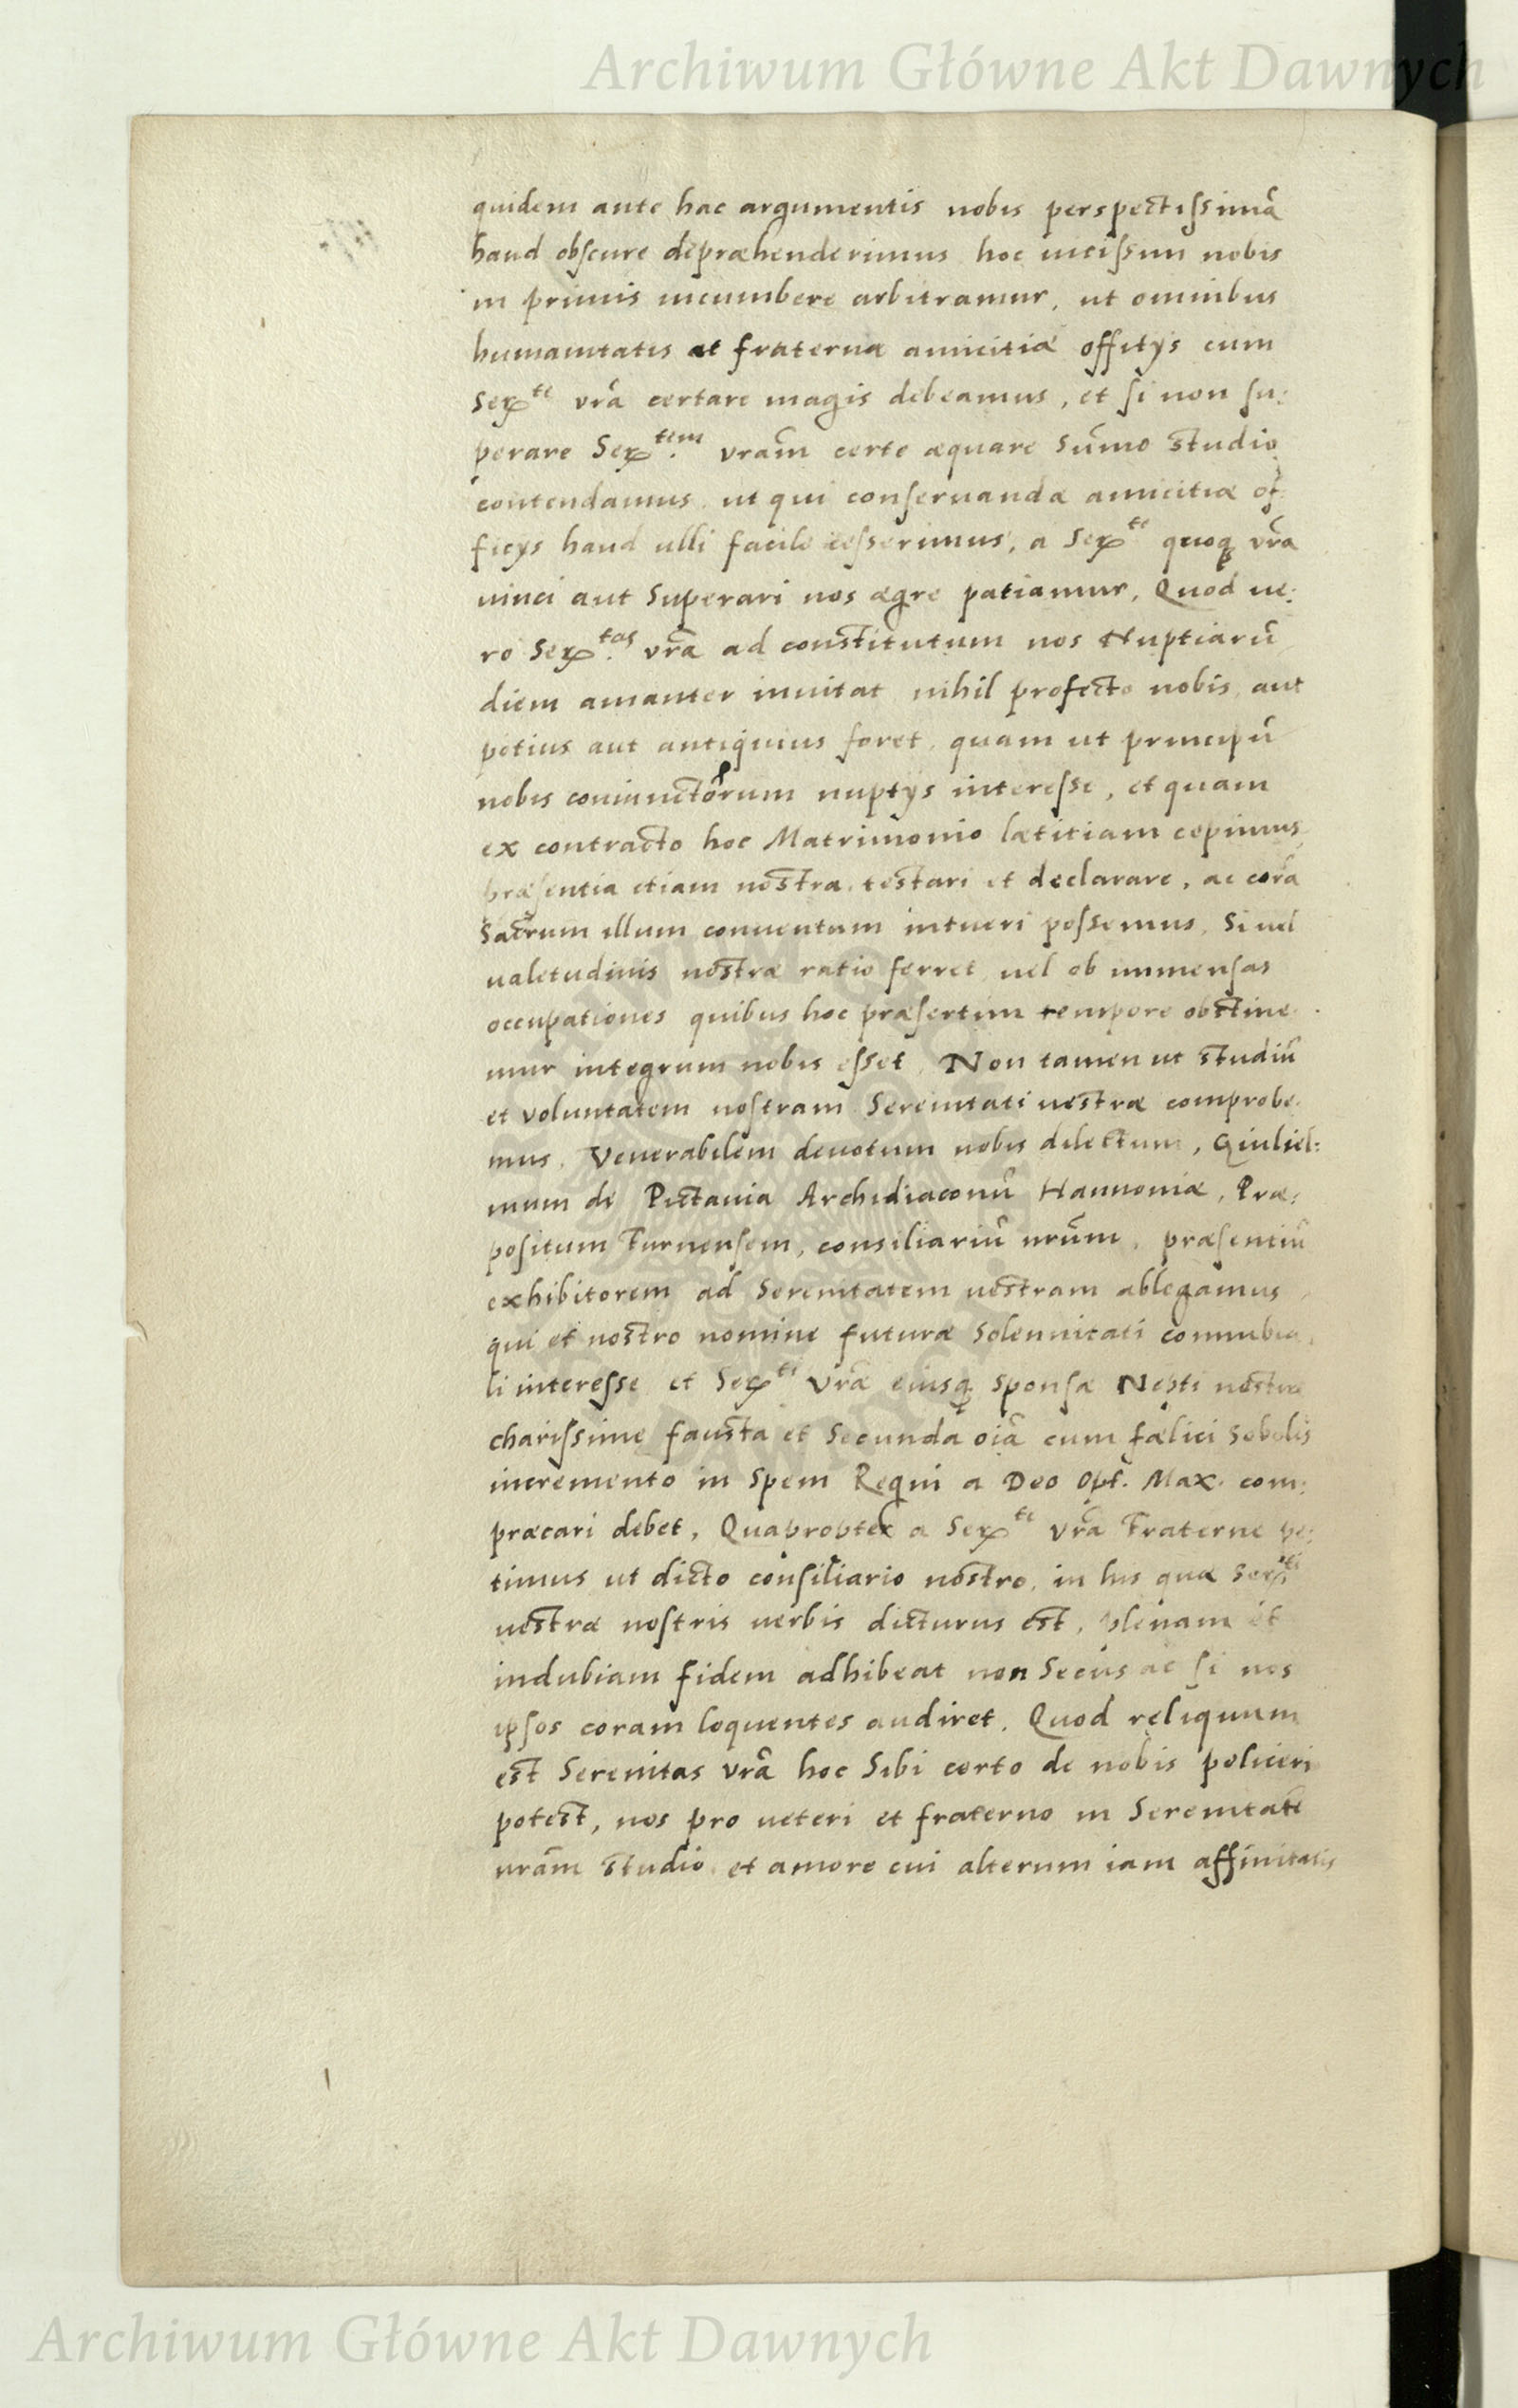 Archiwum Główne Akt Dawnych
quidem ante hac argumentis nobis perspectissimā
haud obscure depræhenderimus hoc uicissim nobis
in primis incumbere arbitramur, ut omnibus
humanitatis ac fraternæ amicitiæ offitijs cum
Ser^te vrā certare magis debeamus, et si non su:
perare Ser^tem vram̄ certe æquare sum̄o studio
contendamus, ut qui conseruandæ amicitiæ of
ficijs haud ulli facile cesserimus, a Ser^te quoq vrā
uinci aut superari nos ægre patiamur, Quod ue:
ro Ser^tas vrā ad constitutum nos Nuptiarū
diem amanter inuitat nihil profecto nobis aut
potius aut antiquius foret, quam ut principū
nobis coniunctorum nuptijs interesse, et quam
ex contracto hoc Matrimonio lætitiam cepimus,
præsentia etiam nostra testari et declarare, ac corā
Sacrum illum conuentum intueri possemus, Si uel
ualetudinis nostræ ratio ferret uel ob immensas
occupationes quibus hoc præsertim tempore obstine
mur integrum nobis esset, Non tamen ut studiū
et voluntatem nostram Serenitati uestræ comprobe
mus, Venerabilem deuotum nobis dilectum, Guliel:
mum de Pictauia Archidiaconū Hannoniæ, Præ:
positum Furnensem, consiliariū nrūm, præsentiū
exhibitorem ad Serenitatem uestram ablegamus
qui et nostro nomine futuræ Solennitati connubia
li interesse et Ser^ti Vræ eiusq Sponsæ Nepti nostræ
charissime fausta et Secunda oīa cum fælici Sobolis
incremento in Spem Regni a Deo Opt. Max. com:
præcari debet, Quapropter a Ser^te vrā Fraterne pe:
timus ut dicto consiliario nostro, in his quæ Ser^ti
uestræ nostris uerbis dicturus est, plenam et
indubiam fidem adhibeat non Secus ac si nos
ipsos coram loquentes audiret, Quod reliquum
est Serenitas vrā hoc Sibi certo de nobis policeri
potest, nos pro ueteri et fraterno in Serenitatē
uram̄ studio et amore cui alterum iam affinitatis
Archiwum Główne Akt Dawnych